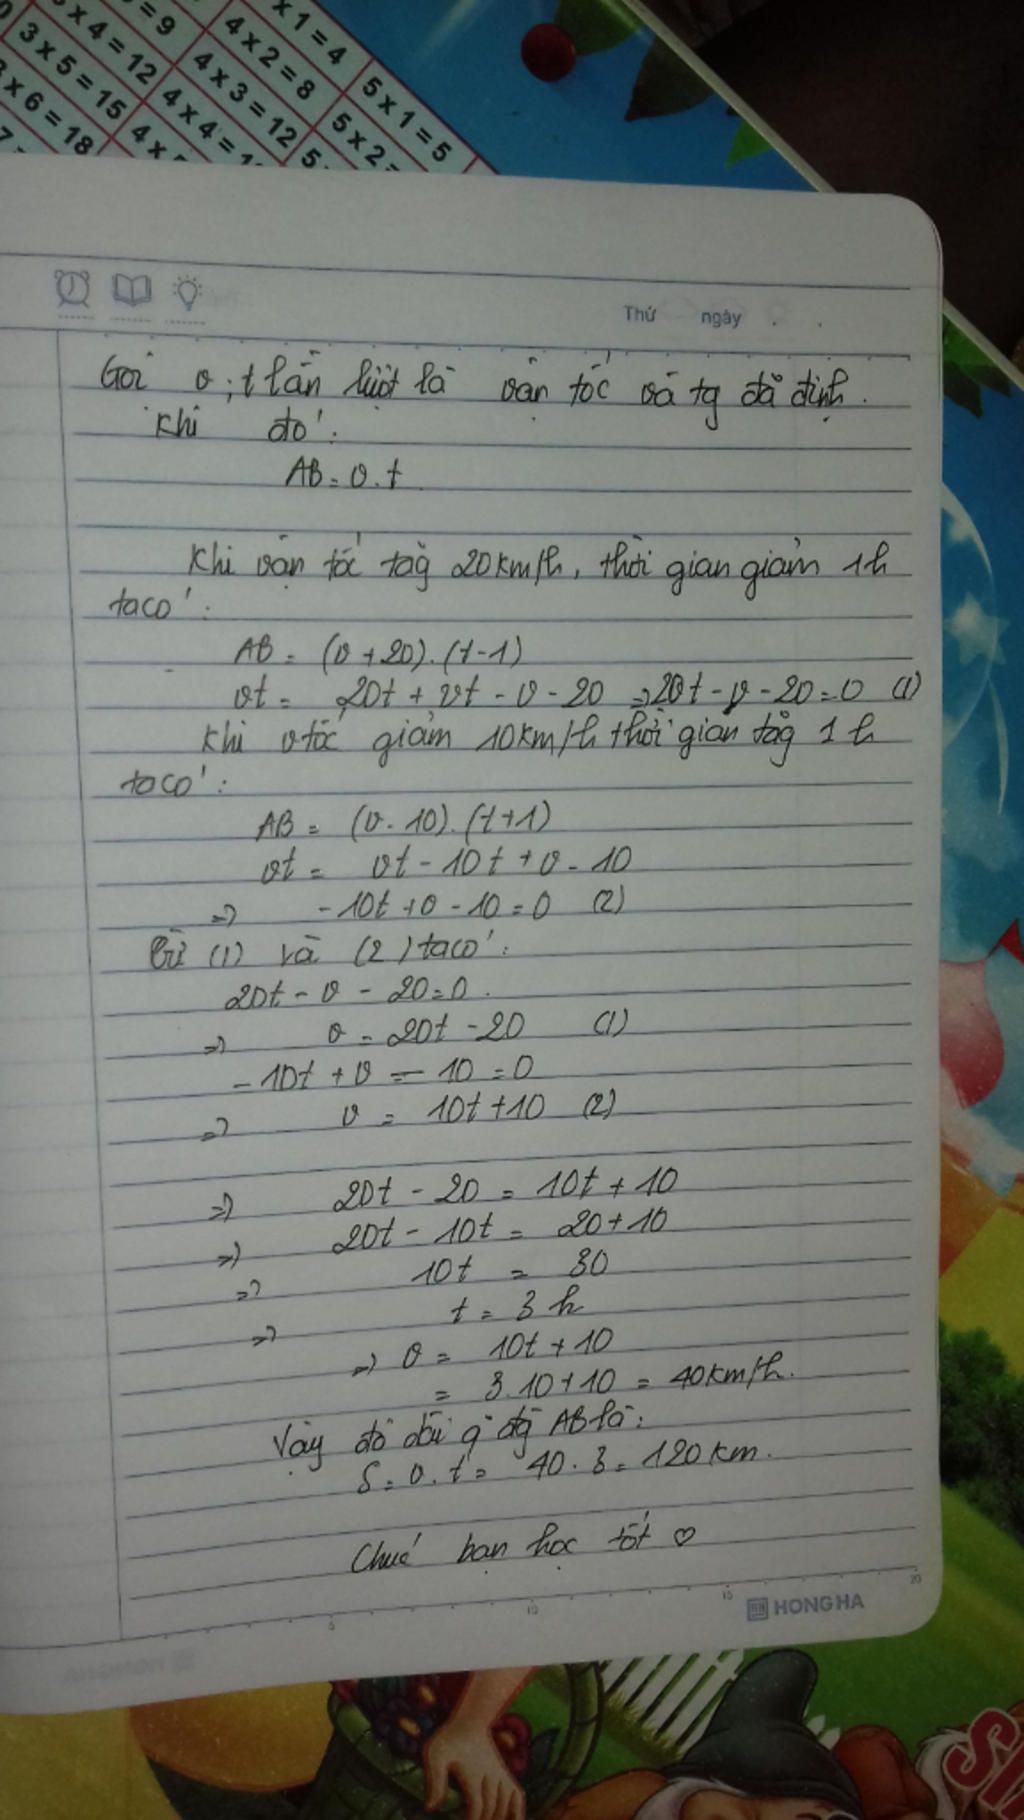 x 1 = 4
= 9
x 4 = 12
4 x 2 = 8
5 x 1 = 5
3 x 5 = 15
4 x 3 = 12
5 x 2 =
x 6 = 18
4 x 4 = 1
5
7 =
4 x
Thứ ngày
Gọi v; t lần lượt là vận tốc và tg đã định.
Khi đó:
AB = v.t
Khi vận tốc tăg 20km/h, thời gian giảm 1h
ta có:
AB = (v + 20).(t - 1)
vt = 20t + vt - v - 20 => 20t - v - 20 = 0 (1)
Khi vtốc giảm 10km/h thời gian tăg 1h
ta có:
AB = (v - 10).(t + 1)
vt = vt - 10t + v - 10
=> -10t + v - 10 = 0 (2)
Từ (1) và (2) ta có:
20t - v - 20 = 0.
=> v = 20t - 20 (1)
-10t + v - 10 = 0
=> v = 10t + 10 (2)
=> 20t - 20 = 10t + 10
=> 20t - 10t = 20 + 10
=> 10t = 30
=> t = 3h
=> v = 10t + 10
= 3.10 + 10 = 40km/h.
Vậy độ dài q đg AB là:
S = v.t = 40.3 = 120km.
Chúc bạn học tốt ♡
5 10 15 20
HONG HA